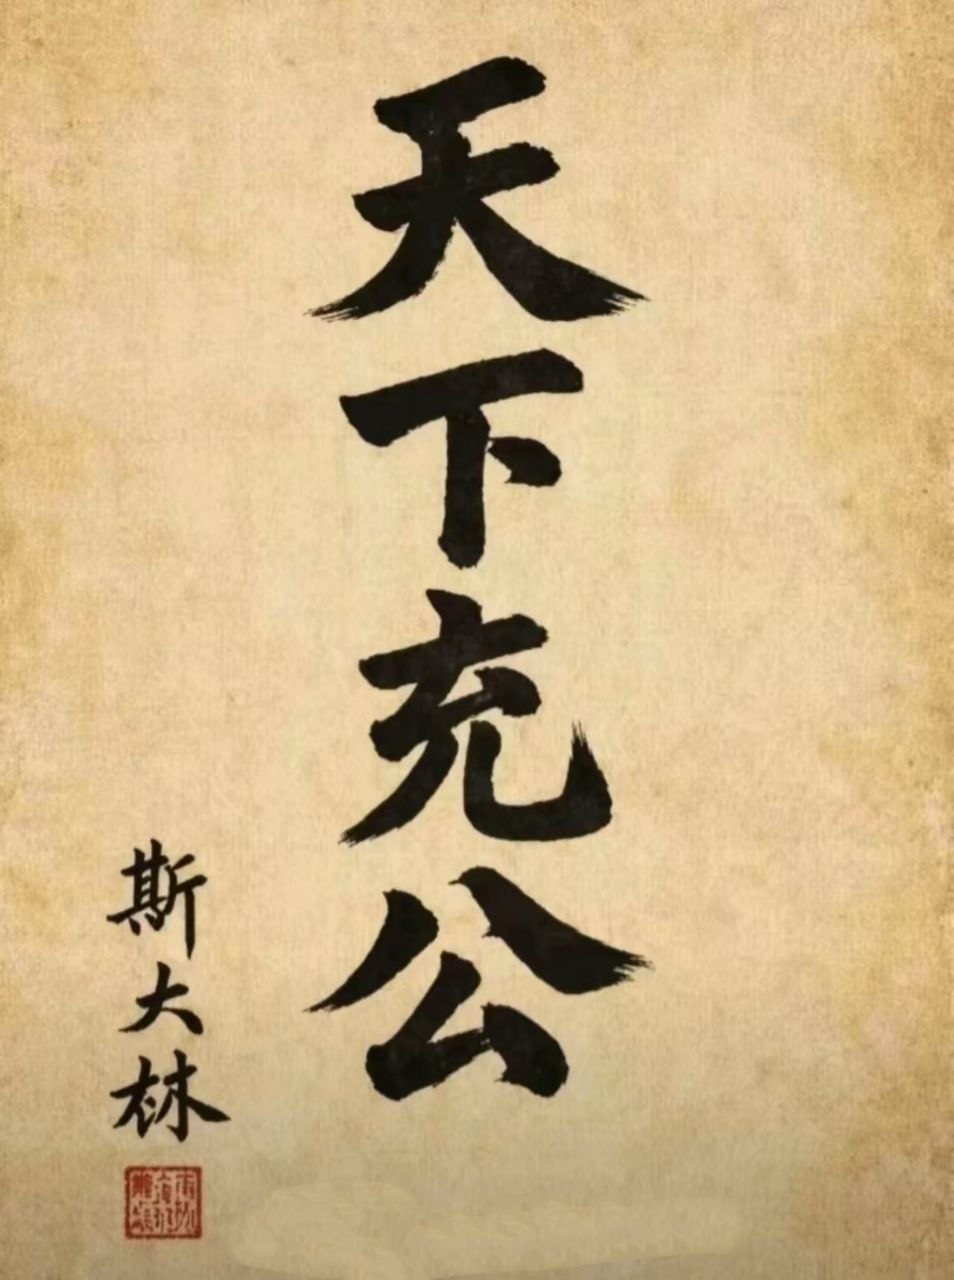 天下充公
斯大林